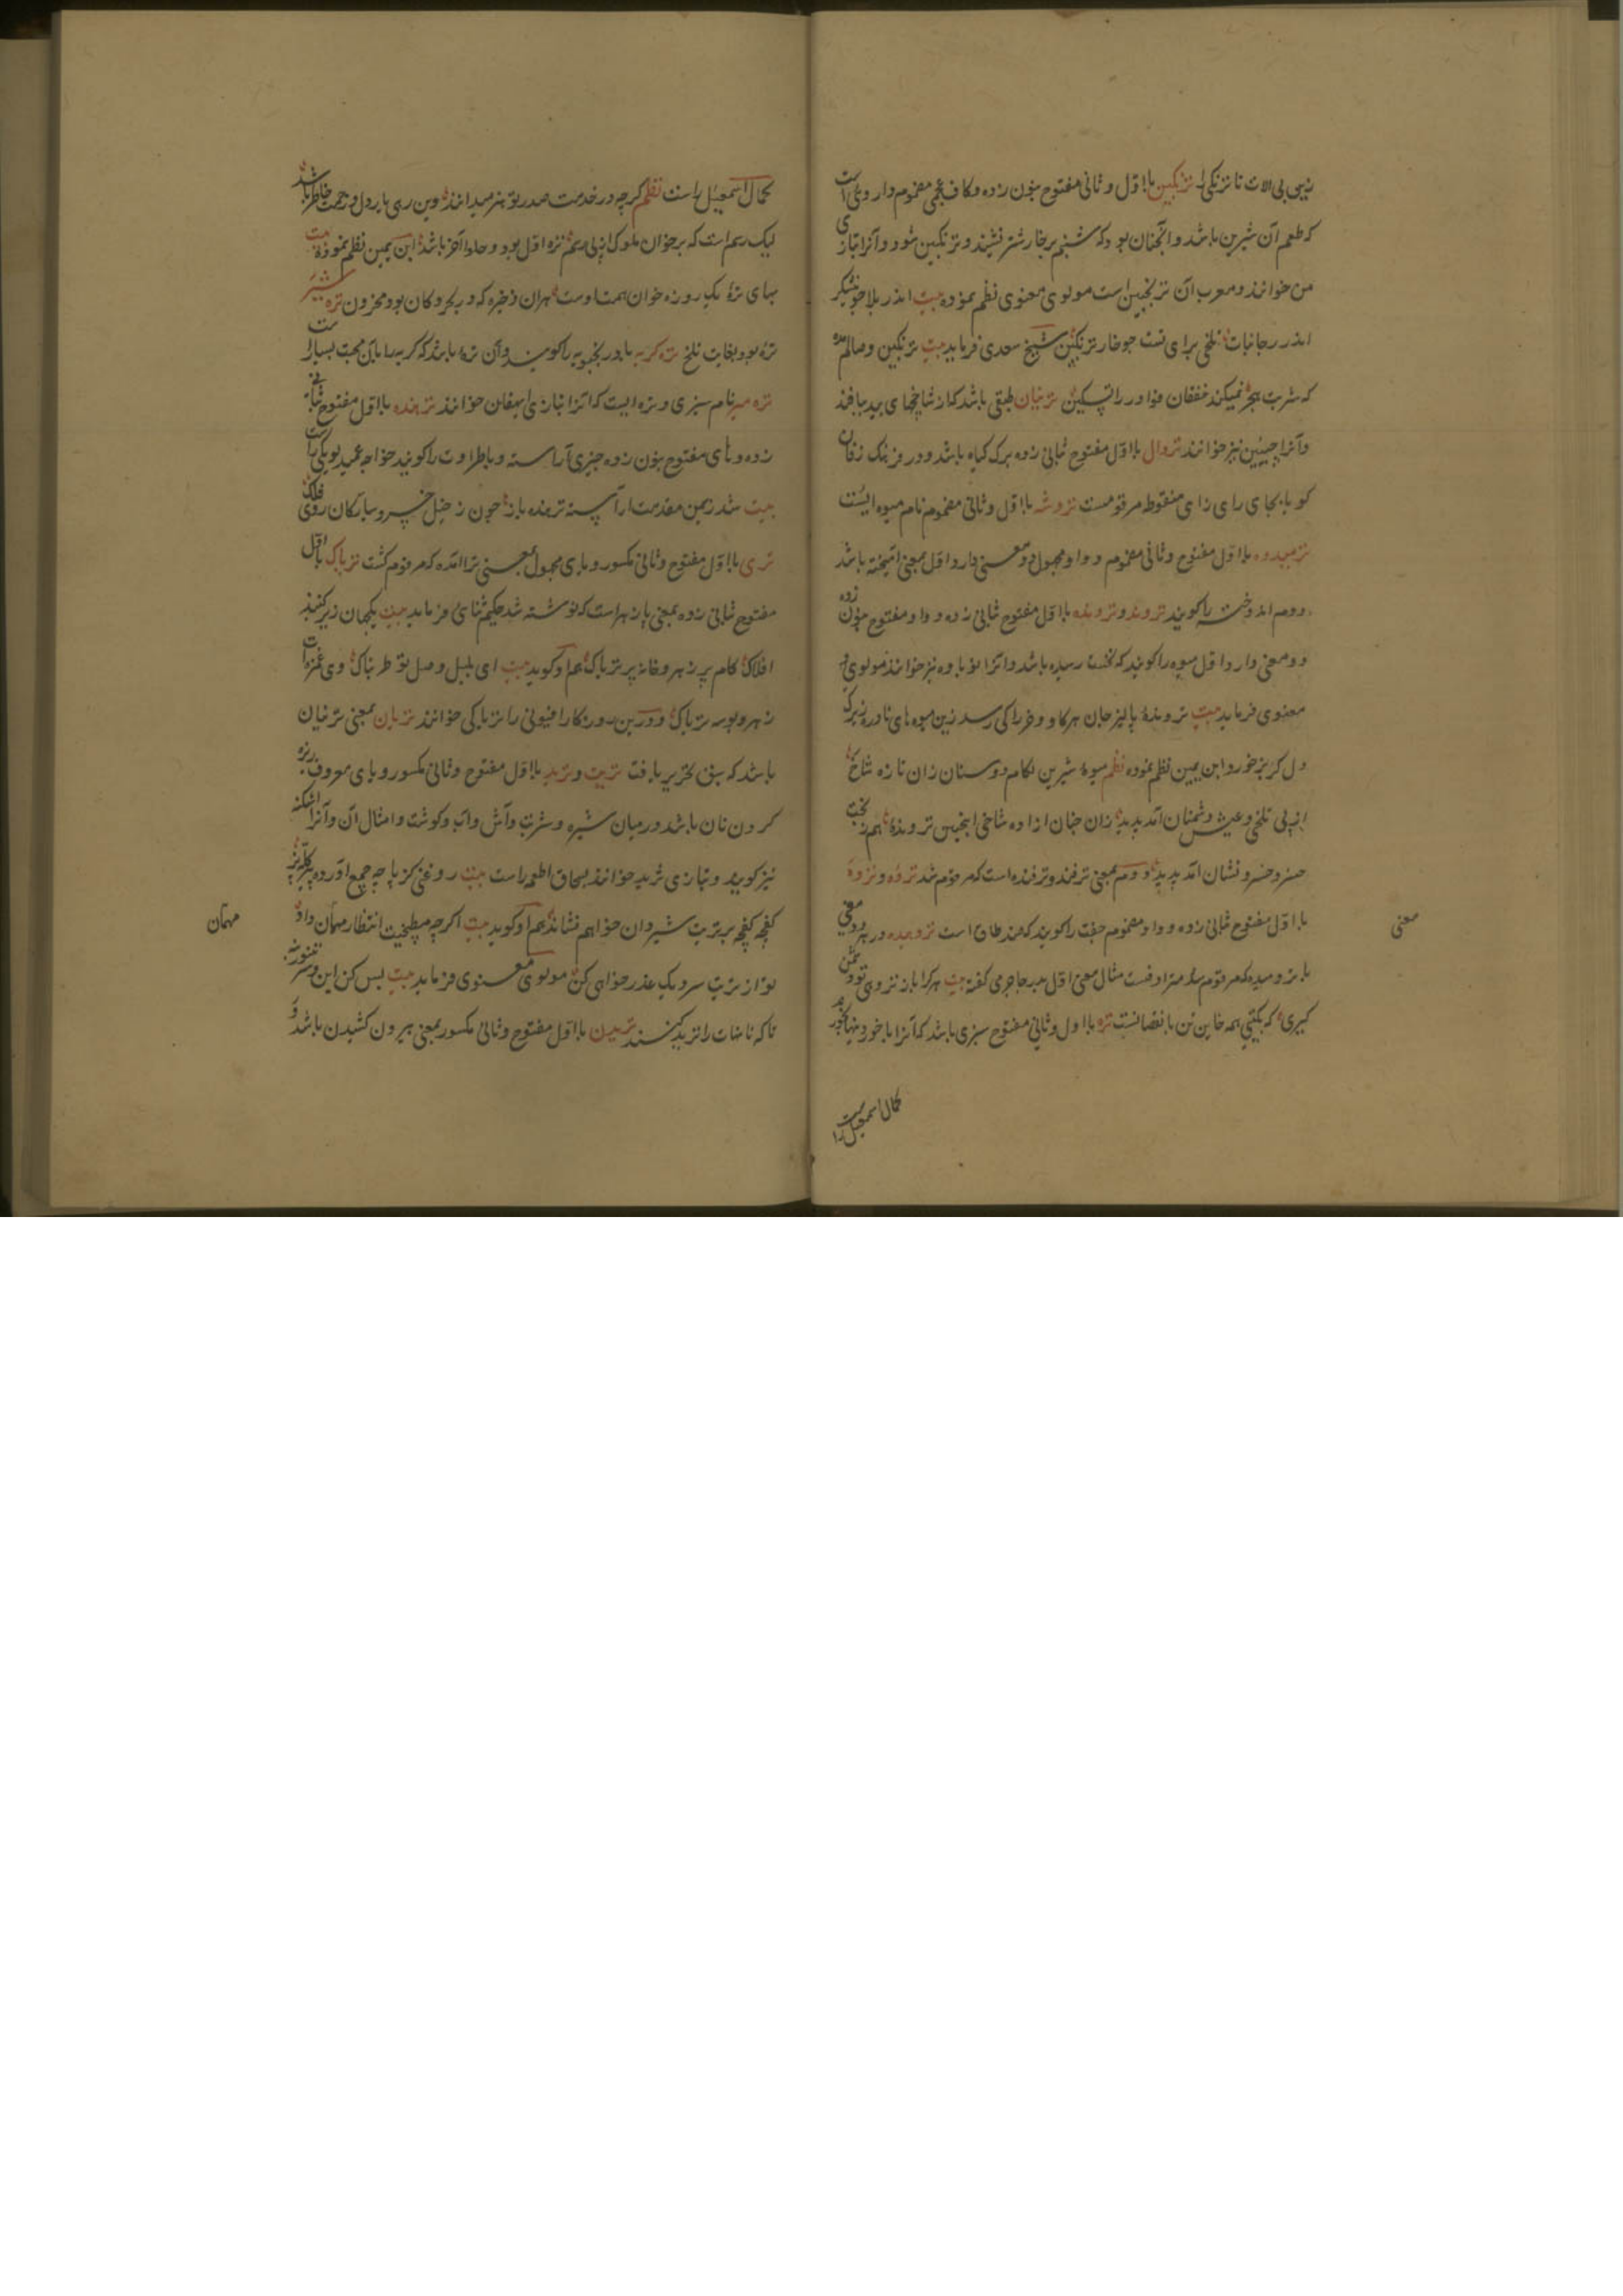 زیبی بی الات تا ترنکی ترنکبین با اول و ثانی مفتوح بنون زده و کاف عجمی مضموم داروی است
که طعم آن شیرین باشد و آنچنان بود که شبنم بر خار شتر نشیند و ترنکبین شود و آنرا بتازی
من خوانند و معرب آن ترنجبین است مولوی معنوی نظم نموده بیت اندر بلا چو نیشکر
اندر رجا نبات تلخی برای تست چو خار ترنکبین شیخ سعدی فرماید بیت ترنکبین وصالم بده
که شربت هجر نمیکند خفقان فواد را تسکین ترنیان طبقی باشد که از شاخهای بید بافند
و آنرا چپین نیز خوانند تروال با اول مفتوح بثانی زده برک کیاه باشد و در فرهنک زفان
کویا بجای رای زای منقوط مرقومست تروشه با اول و ثانی مضموم نام میوه ایست
با اول مفتوح و ثانی مضموم و واو مجهول دو معنی دارد اول بمعنی آمیخته باشد
دوم اندوخته راکویند تروند و ترونده با اول مفتوح ثانی زده و واو مفتوح بنون زده
دو معنی دارد اول میوه را کویند که نخست رسیده باشد و آنرا نو باوه نیز خوانند مولوی
معنوی فرماید بیت تروندهٔ پالیز جان هر کاو و خر را کی رسد زین میوه های نادره زیرک
دل کربز خورد ابن یمین نظم نموده نظم میوهٔ شیرین بکام دوستان زان تازه شاخ
از پی تلخی عیش دشمنان آمد پدید زان چنان ازاده شاخی اینچنین تروندهٔ هم ز بخت
خسرو خسرو نشان آمد پدید دوم بمعنی ترفند و ترفنده است که مرقوم شد تروه و تروهٔ
با اول مفتوح ثانی زده و واو مضموم جفت را کویند که ضد طاق است در هر دو معنی
معنی
با مرقوم شد مترادفست مثال معنی اول بدر جاجرمی کفته بیت هر کرا باز
کیری که بکیتی همه خاین تن با نقصانست تره با اول و ثانی مفتوح سبزی باشد که آنرا با خوردنیها خورند
کمال اسمعیل راست
کمال اسمعیل راست نظم کرچه در خدمت صدر تو هنر میدانند وین رهی بار دل و زحمت خاطر باشد
لیک رسم است که بر خوان ملوک از پی هم تره اول بود و حلوا آخر باشد ابن یمین نظم نموده بیت
بهای ترهٔ یک روزه خوان همت اوست هر آن ذخیره که در بحر و کان بود مخزون تره شیر
تره بود بغایت تلخ تره کربه بادرنجبویه را کویند و آن تره باشد که کربه را با آن محبت بسیار است
تره میر نام سبزی و تره ایست که آنرا بتازی ایهقان خوانند ترهنده با اول مفتوح بثانی
زده و های مفتوح بنون زده چیزی آراسته و با طراوت را کویند خواجه عمید لوبکی راست
بیت شد زمین مقدمت آراسته ترهنده باز چون ز خیل خسرو سیارکان روی فلک
تری با اول مفتوح و ثانی مکسور و یای مجهول بمعنی تر آمده که مرقوم کشت تریاک با اول
مفتوح ثانی زده بمعنی پازهر است که نوشته شد حکیم ثنائی فرماید بیت یکجهان زیر کنبد
افلاک کام پر زهر و خانه پر تریاک هم او کوید بیت ای بلبل وصل تو طربناک وی غمزه ات
زهر و بوسه تریاک و درین روزکار افیونی را تریاکی خوانند تریان بمعنی ترنیان
باشد که سبق تحریر یافت تریت و ترید با اول مفتوح و ثانی مکسور و یای معروف ریزه
کردن نان باشد در میان شیره و شربت و آش و آب و کوشت و امثال آن و آنرا اشکنه
نیز کویند و بتازی ثرید خوانند بسحاق اطعمه راست بیت روغنی کز پاچه جمع آورده
کفچه کفچه بر تریت شیردان خواهم فشاند هم او کوید بیت اکرچه میپختیت انتظار مهمان داد
مهمان
تو از تریت سر و یک عذر خواهی کن مولوی معنوی فرماید بیت بس کن این و سر تنور
تا که نانهات را ترید کنند تریدن با اول مفتوح و ثانی مکسور بمعنی بیرون کشیدن باشد و